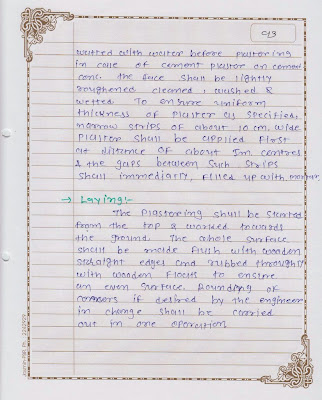 wetted with water before plastering
in case of cement plaster on cement
conc. the face shall be lightly
roughened cleaned, washed &
wetted. To ensure uniform
thickness of plaster as specified,
narrow strips of about 10 cm. wide
plaster shall be applied first
at distance of about 1m centres
& the gaps between such strips
shall immediatly, filled up with mortar.
→ Laying:-
The plastering shall be started
from the top & worked towards
the ground. The whole surface
shall be made flush with wooden
straight edges and rubbed throughly
with wooden floats to ensure
an even surface. Rounding of
corners if desired by the engineer
in charge shall be carried
out in one operation